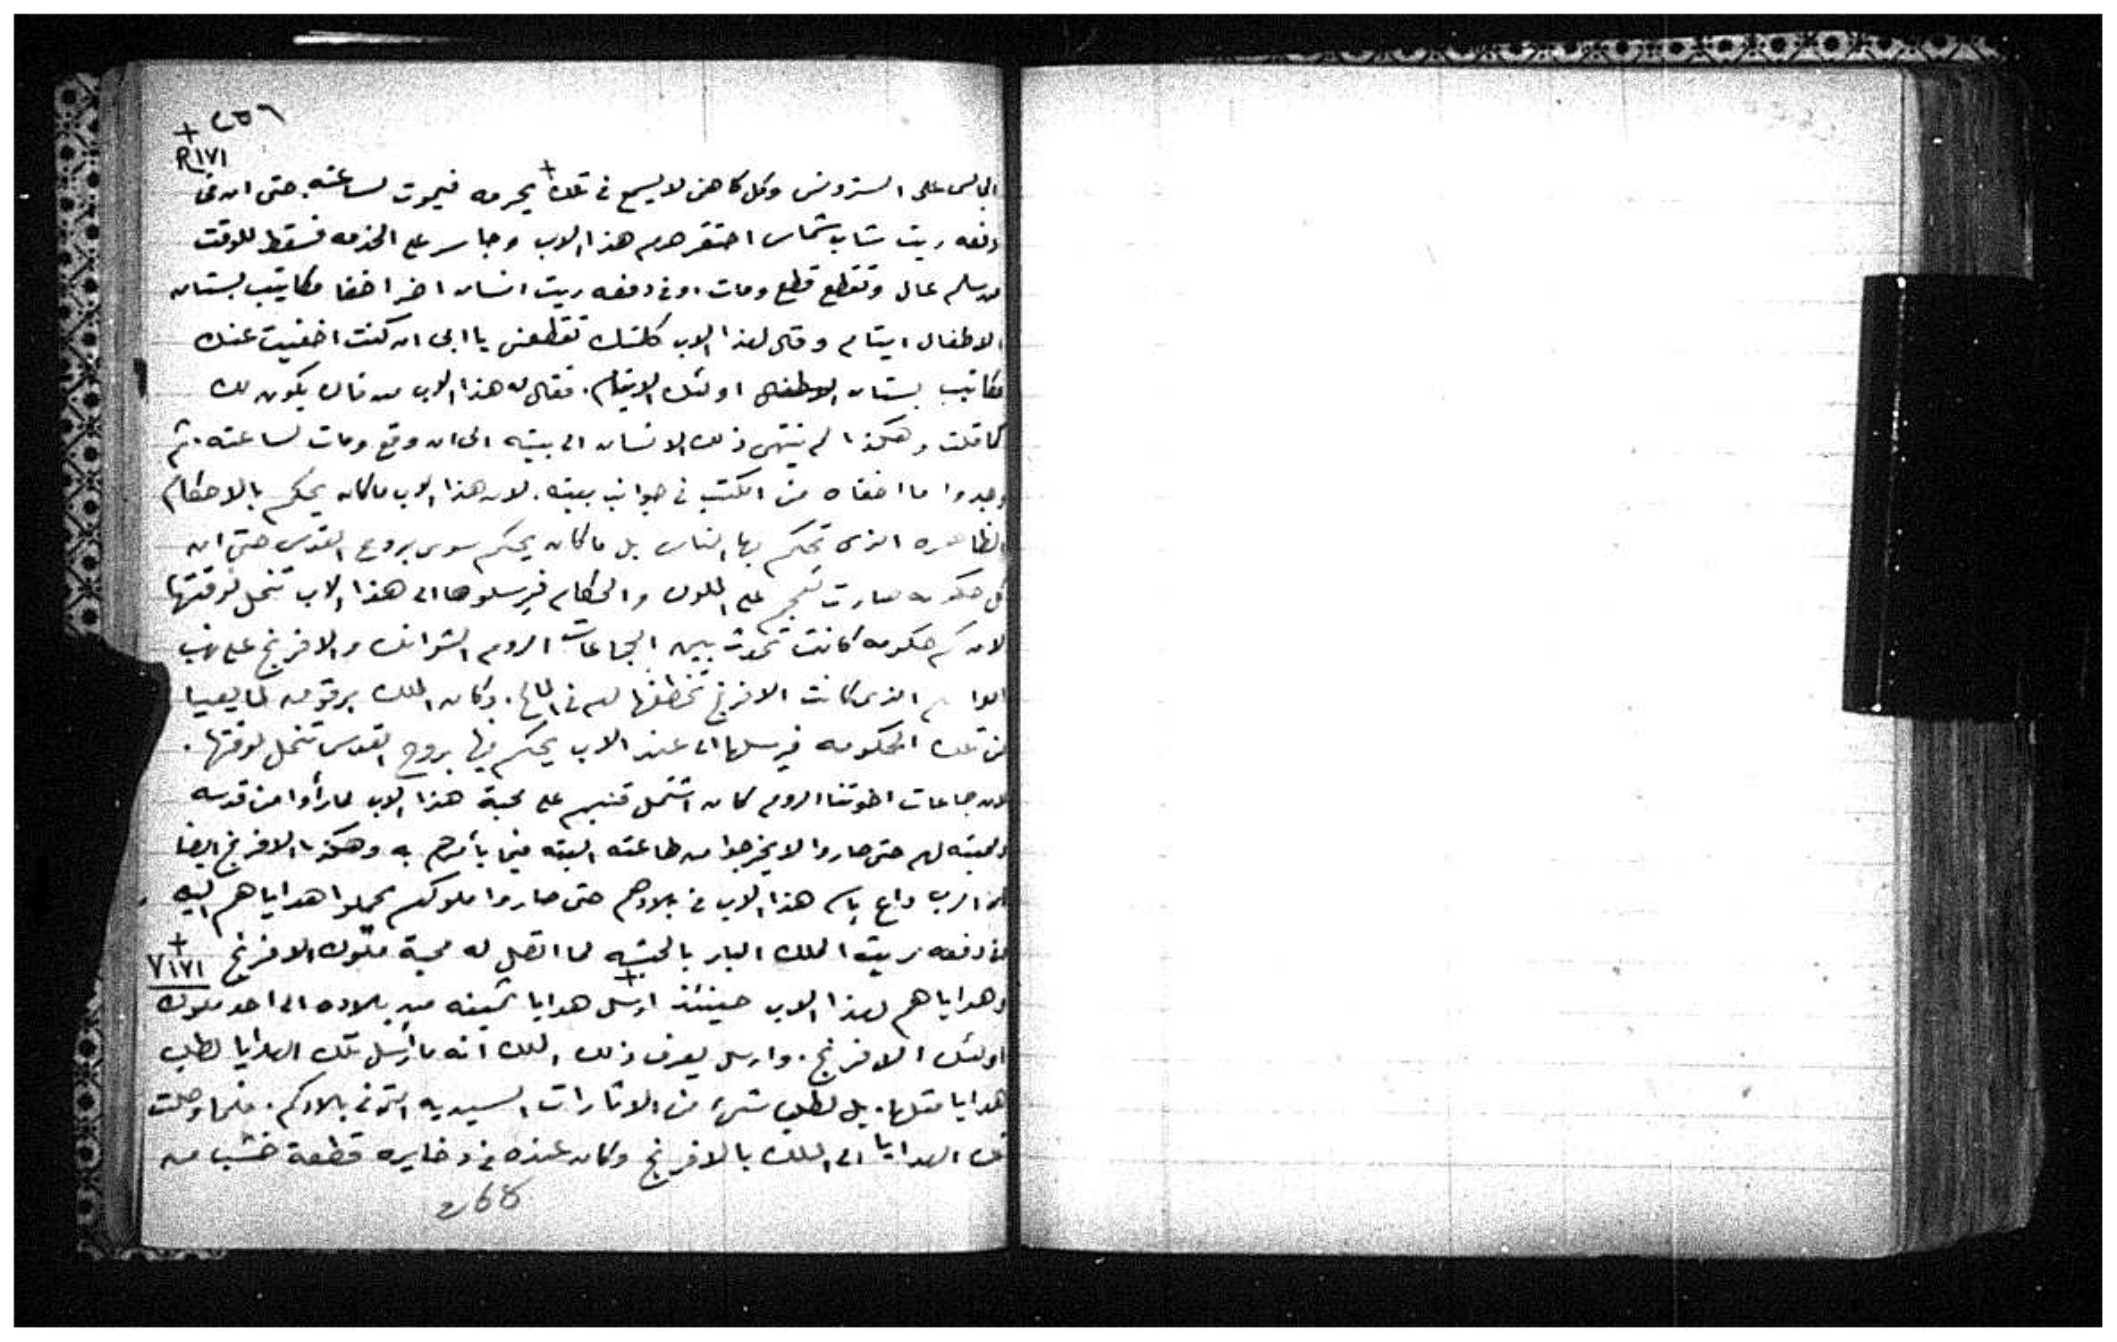 ٢٥٦
+
R ١٧١
الجالس على السترونس وكل كاهن لا يسمع في تلك + يحرمه فيموت لساعته. حتى ان في
دفعه ريت شاب شماس احتقر حرم هذا الاب وجاسر على الخدمه فسقط للوقت
من سلم عال وتقطع قطع ومات. وفي دفعه ريت انسان اخر اخفا مكاتيب بستان
الاطفال ايتام وقال لهذا الاب كلمتك تقطعني يا ابي ان كنت اخفيت عنك
مكاتيب بستان الاطفال اولئك الايتام. فقال له هذا الاب من فاك يكون لك
كما قلت وهكذا لم ينتهى ذلك الانسان الى بيته الى ان وقع ومات لساعته. ثم
وجدوا ما اخفاه من الكتب في جوانب بيته. لان هذا الاب ما كان يحكم بالاحكام
الظاهره الذى تحكم بها الناس بل ما كان يحكم سوى بروح القدس حتى ان
كل حكومه صارت تعجم على الملوك والحكام فيرسلوها الى هذا الاب تنحل لوقتها
لان كم حكومه كانت تحدث بين الجماعات الروم الشوانك والافرنج على نهب
الذى كانت الافرنج تخطفها لهم في المالح. وكان الملك برقوق لما يعيا
من تلك الحكومه فيرسلها الى عند الاب يحكم فيها بروح القدس تنحل لوقتها.
لان جماعات اخوتنا الروم كان اشتمل قلبهم على محبة هذا الاب لما رأوا من قدسه
ومحبته لهم حتى صاروا لا يخرجوا من طاعته البته فيما يأمرهم به وهكذا الافرنج ايضا
الرب داع باسم هذا الاب في بلادهم حتى صاروا ملوكهم يحملوا هداياهم اليه
في دفعه ريت الملك البار بالحبشه لما اتصل له محبة ملوك الافرنج + V ١٧١
وهداياهم لهذا الاب حينئذ + ارسل هدايا ثمينه من بلاده الى احد ملوك
اولئك الافرنج. وارسل يعرف ذلك الملك انه ما ارسل تلك الهدايا لطلب
هدايا مثلها. بل لطلب شيء من الاثارات السيديه التى في بلادكم. فلما وصلت
تلك الهدايا الى الملك بالافرنج وكان عنده في دخايره قطعة خشب من
268